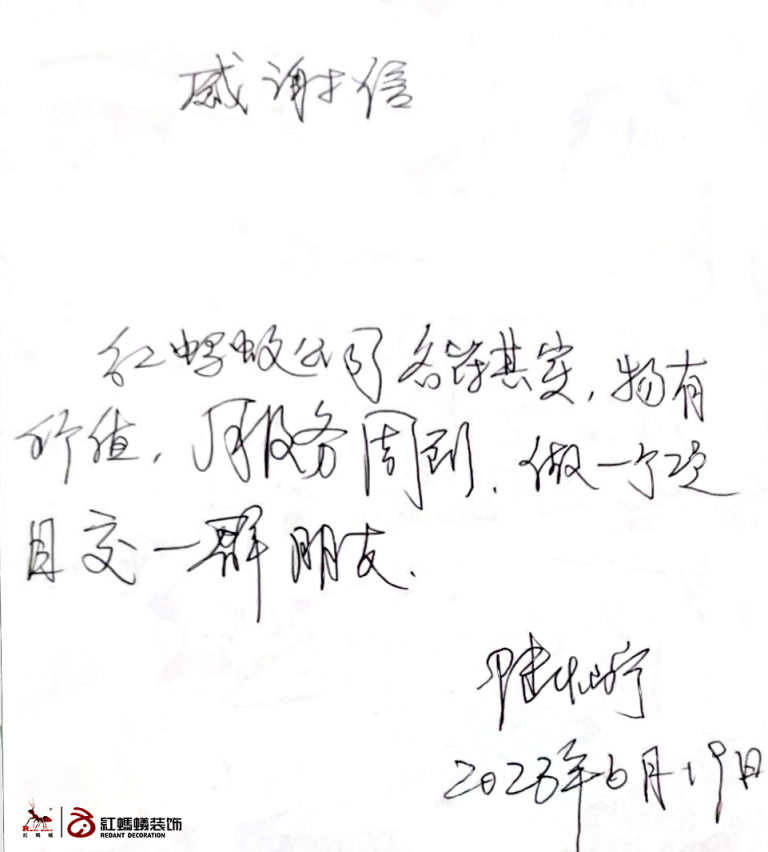 感谢信
红蚂蚁公司名符其实,物有
价值,服务周到,做一个项
目交一群朋友.
2023年6月19日
紅螞蟻
紅螞蟻装饰
REDANT DECORATION